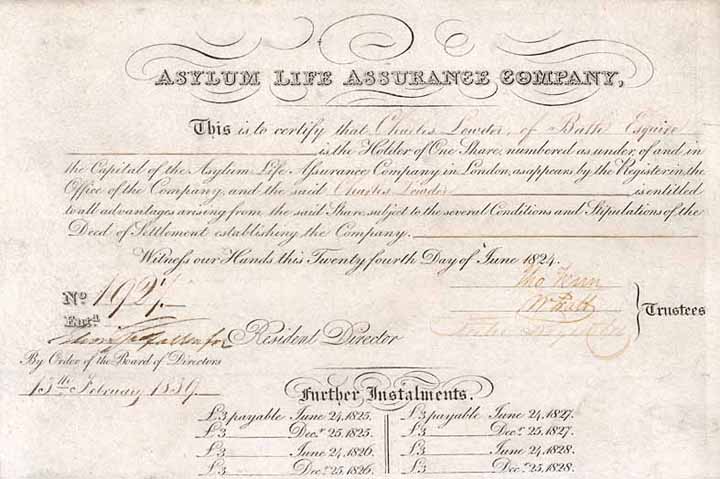 ASYLUM LIFE ASSURANCE COMPANY,
This is to certify that Charles Lowder, of Bath Esquire
is the Holder of One Share, numbered as under, of and in
the Capital of the Asylum Life Assurance Company in London, as appears by the Register in the
Office of the Company, and the said Charles Lowder is entitled
to all advantages arising from the said Share, subject to the several Conditions and Stipulations of the
Deed of Settlement establishing the Company.
Witness our Hands this Twenty fourth Day of June 1824.
Tho Fenn
Wm Pratt
Trustees
No 1927
Entd
Resident Director
By Order of the Board of Directors
13th February 1839
Further Instalments.
£3 payable June 24, 1825.
£3 Decr 25, 1825.
£3 June 24, 1826.
£3 Decr 25, 1826.
£3 payable June 24, 1827.
£3 Decr 25, 1827.
£3 June 24, 1828.
£3 Decr 25, 1828.